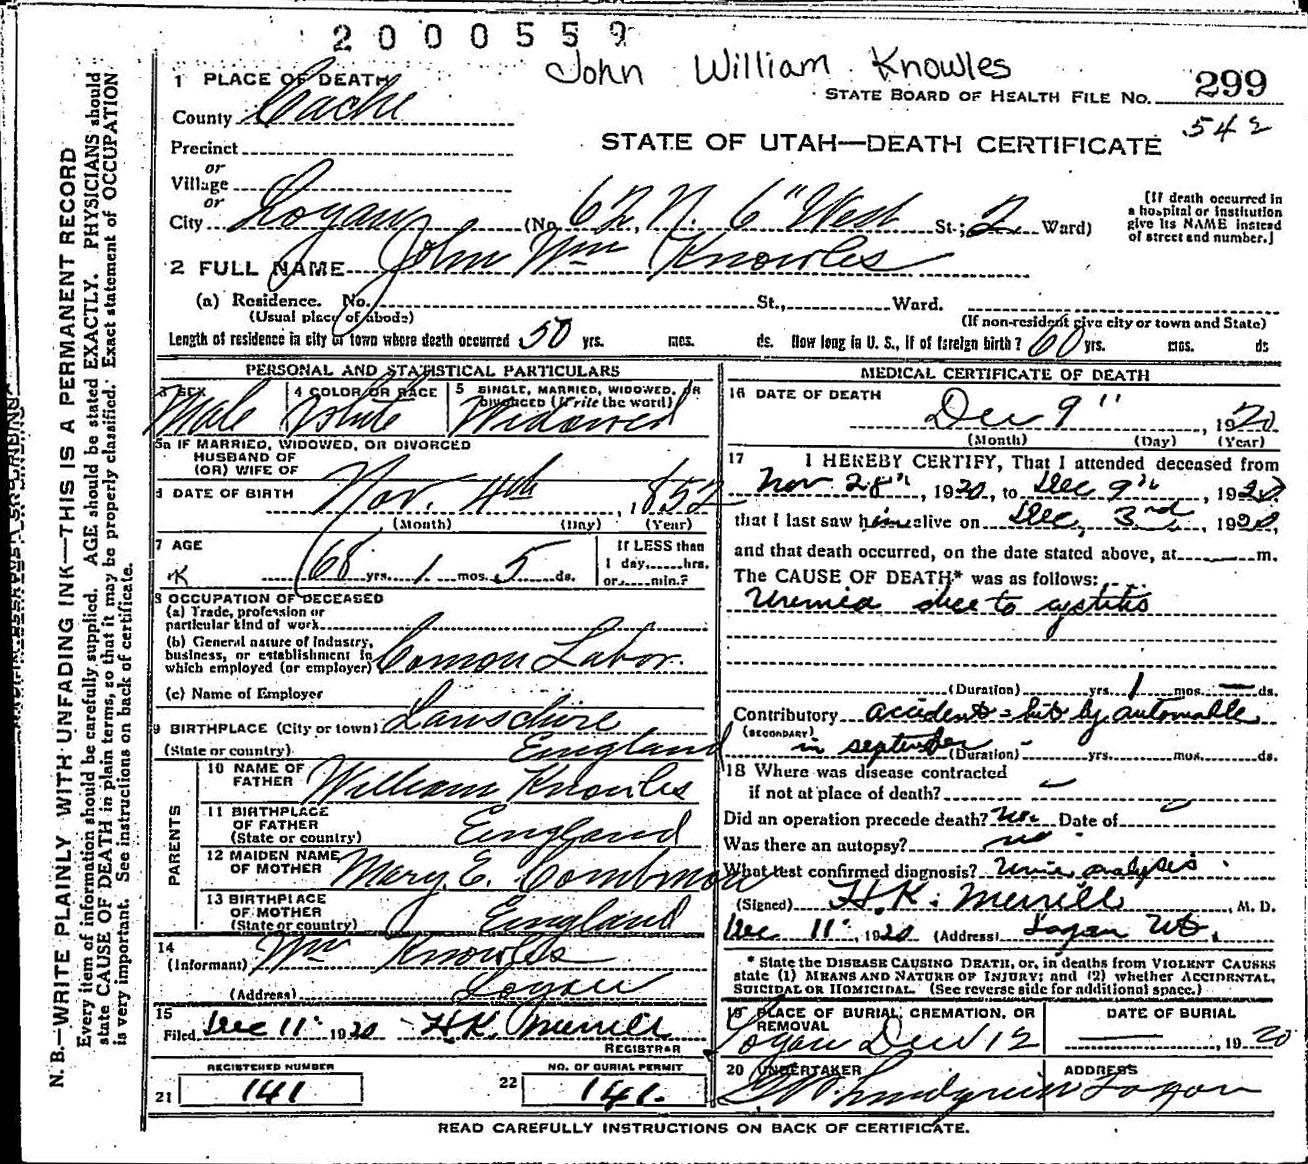 2000559
John William Knowles
1 PLACE OF DEATH
STATE BOARD OF HEALTH FILE NO. 299
County Cache
542
STATE OF UTAH—DEATH CERTIFICATE
Precinct
or
Village
or
City Logan (No. 62, N. 6" West St.; 2 Ward)
[If death occurred in
a hospital or institution
give its NAME instead
of street and number.]
2 FULL NAME John Wm Knowles
(a) Residence. No. St., Ward.
(Usual place of abode)
(If non-resident give city or town and State)
Length of residence in city or town where death occurred 50 yrs. mos. ds. How long in U. S., if of foreign birth? 60 yrs. mos. ds
PERSONAL AND STATISTICAL PARTICULARS
3 SEX
Male
4 COLOR OR RACE
White
5 SINGLE, MARRIED, WIDOWED, OR
DIVORCED (Write the word)
Widowed
5a IF MARRIED, WIDOWED, OR DIVORCED
HUSBAND OF
(OR) WIFE OF
6 DATE OF BIRTH Nov. 4th, 1852
(Month) (Day) (Year)
7 AGE
68 yrs. 1 mos. 5 ds.
If LESS than
1 day, hrs.
or min.?
8 OCCUPATION OF DECEASED
(a) Trade, profession or
particular kind of work
(b) General nature of Industry,
business, or establishment in
which employed (or employer) Comon Labor.
(c) Name of Employer
9 BIRTHPLACE (City or town)
(State or country) England
PARENTS
10 NAME OF
FATHER William Knowles
11 BIRTHPLACE
OF FATHER
(State or country) England
12 MAIDEN NAME
OF MOTHER Mary. E.
13 BIRTHPLACE
OF MOTHER
(State or country) England
14
(Informant) Wm Knowles
(Address) Logan
15
Filed Dec 11" 1920 H.K. Merrill
REGISTRAR
REGISTERED NUMBER
21 141
NO. OF BURIAL PERMIT
22 141.
MEDICAL CERTIFICATE OF DEATH
16 DATE OF DEATH
Dec 9", 1920
(Month) (Day) (Year)
17 I HEREBY CERTIFY, That I attended deceased from
Nov 28", 1920, to Dec 9", 1920
that I last saw him alive on Dec, 3rd, 1920,
and that death occurred, on the date stated above, at m.
The CAUSE OF DEATH* was as follows:
Uremia due to cystitis
(Duration) yrs. 1 mos. — ds.
Contributory accident = hit by automobile
(SECONDARY)
in september (Duration) yrs. mos. ds.
18 Where was disease contracted
if not at place of death?
Did an operation precede death? no. Date of
Was there an autopsy? no
What test confirmed diagnosis? Urine analysis
(Signed) H.K. Merrill, M. D.
Dec 11", 1920 (Address) Logan Ut.
* State the DISEASE CAUSING DEATH, or, in deaths from VIOLENT CAUSES
state (1) MEANS AND NATURE OF INJURY; and (2) whether ACCIDENTAL,
SUICIDAL OR HOMICIDAL. (See reverse side for additional space.)
19 PLACE OF BURIAL, CREMATION, OR
REMOVAL
Logan Dec 12
DATE OF BURIAL
, 1920
20 UNDERTAKER
ADDRESS
Logan
READ CAREFULLY INSTRUCTIONS ON BACK OF CERTIFICATE.
N. B.—WRITE PLAINLY WITH UNFADING INK—THIS IS A PERMANENT RECORD
Every item of information should be carefully supplied. AGE should be stated EXACTLY. PHYSICIANS should
state CAUSE OF DEATH in plain terms, so that it may be properly classified. Exact statement of OCCUPATION
is very important. See instructions on back of certificate.